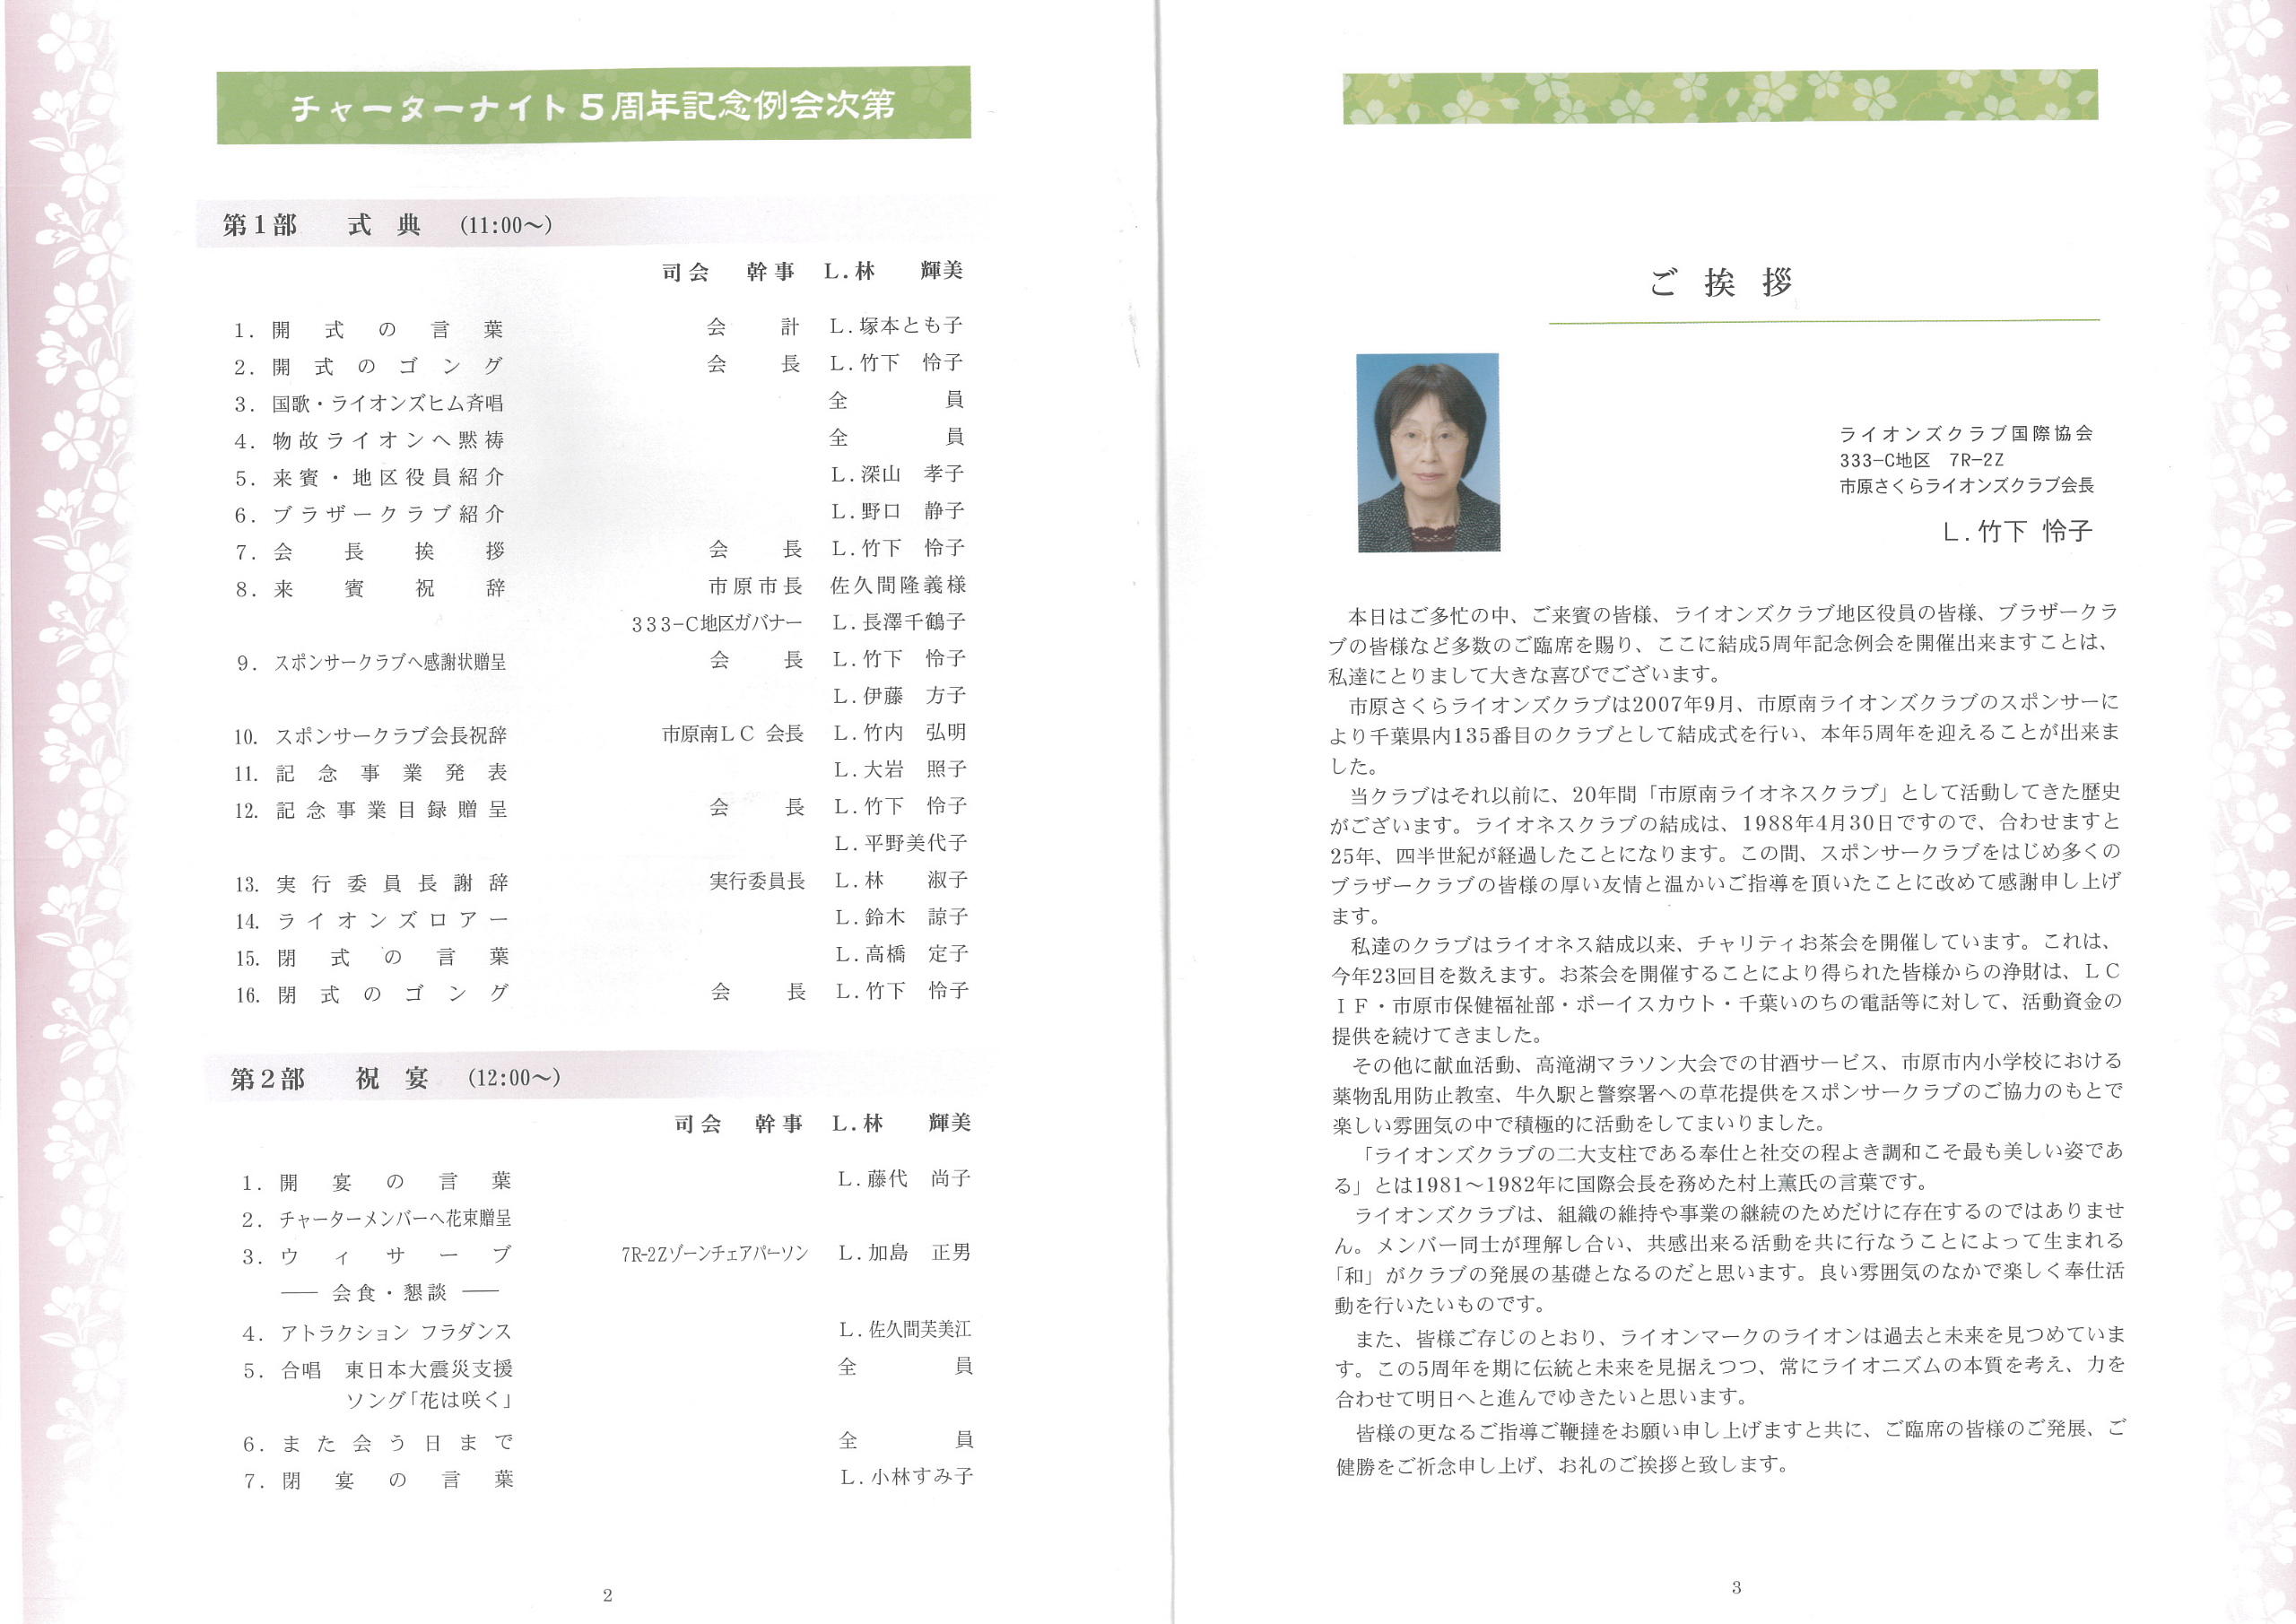 チャーターナイト5周年記念例会次第
第1部 式典 (11:00〜)
司会 幹事 L.林 輝美
1. 開式の言葉 会計 L.塚本とも子
2. 開式のゴング 会長 L.竹下 怜子
3. 国歌・ライオンズヒム斉唱 全員
4. 物故ライオンへ黙祷 全員
5. 来賓・地区役員紹介 L.深山 孝子
6. ブラザークラブ紹介 L.野口 静子
7. 会長挨拶 会長 L.竹下 怜子
8. 来賓祝辞 市原市長 佐久間隆義様
333-C地区ガバナー L.長澤千鶴子
9. スポンサークラブへ感謝状贈呈 会長 L.竹下 怜子
L.伊藤 方子
10. スポンサークラブ会長祝辞 市原南LC 会長 L.竹内 弘明
11. 記念事業発表 L.大岩 照子
12. 記念事業目録贈呈 会長 L.竹下 怜子
L.平野美代子
13. 実行委員長謝辞 実行委員長 L.林 淑子
14. ライオンズロアー L.鈴木 諒子
15. 閉式の言葉 L.高橋 定子
16. 閉式のゴング 会長 L.竹下 怜子
第2部 祝宴 (12:00〜)
司会 幹事 L.林 輝美
1. 開宴の言葉 L.藤代 尚子
2. チャーターメンバーへ花束贈呈
3. ウィサーブ 7R-2Zゾーンチェアパーソン L.加島 正男
── 会食・懇談 ──
4. アトラクション フラダンス L.佐久間芙美江
5. 合唱 東日本大震災支援 全員
ソング「花は咲く」
6. また会う日まで 全員
7. 閉宴の言葉 L.小林すみ子
2
ご挨拶
ライオンズクラブ国際協会
333-C地区 7R-2Z
市原さくらライオンズクラブ会長
L.竹下 怜子
本日はご多忙の中、ご来賓の皆様、ライオンズクラブ地区役員の皆様、ブラザークラ
ブの皆様など多数のご臨席を賜り、ここに結成5周年記念例会を開催出来ますことは、
私達にとりまして大きな喜びでございます。
市原さくらライオンズクラブは2007年9月、市原南ライオンズクラブのスポンサーに
より千葉県内135番目のクラブとして結成式を行い、本年5周年を迎えることが出来ま
した。
当クラブはそれ以前に、20年間「市原南ライオネスクラブ」として活動してきた歴史
がございます。ライオネスクラブの結成は、1988年4月30日ですので、合わせますと
25年、四半世紀が経過したことになります。この間、スポンサークラブをはじめ多くの
ブラザークラブの皆様の厚い友情と温かいご指導を頂いたことに改めて感謝申し上げ
ます。
私達のクラブはライオネス結成以来、チャリティお茶会を開催しています。これは、
今年23回目を数えます。お茶会を開催することにより得られた皆様からの浄財は、LC
IF・市原市保健福祉部・ボーイスカウト・千葉いのちの電話等に対して、活動資金の
提供を続けてきました。
その他に献血活動、高滝湖マラソン大会での甘酒サービス、市原市内小学校における
薬物乱用防止教室、牛久駅と警察署への草花提供をスポンサークラブのご協力のもとで
楽しい雰囲気の中で積極的に活動をしてまいりました。
「ライオンズクラブの二大支柱である奉仕と社交の程よき調和こそ最も美しい姿であ
る」とは1981〜1982年に国際会長を務めた村上薫氏の言葉です。
ライオンズクラブは、組織の維持や事業の継続のためだけに存在するのではありませ
ん。メンバー同士が理解し合い、共感出来る活動を共に行なうことによって生まれる
「和」がクラブの発展の基礎となるのだと思います。良い雰囲気のなかで楽しく奉仕活
動を行いたいものです。
また、皆様ご存じのとおり、ライオンマークのライオンは過去と未来を見つめていま
す。この5周年を期に伝統と未来を見据えつつ、常にライオニズムの本質を考え、力を
合わせて明日へと進んでゆきたいと思います。
皆様の更なるご指導ご鞭撻をお願い申し上げますと共に、ご臨席の皆様のご発展、ご
健勝をご祈念申し上げ、お礼のご挨拶と致します。
3